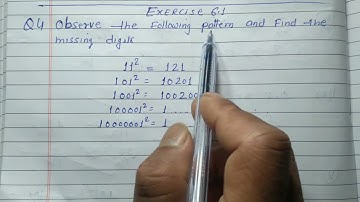 Exercise 6.1
Q4 Observe the following pattern and find the
missing digits
11² = 121
101² = 10201
1001² = 100200
100001² = 1 ......
10000001² = 1